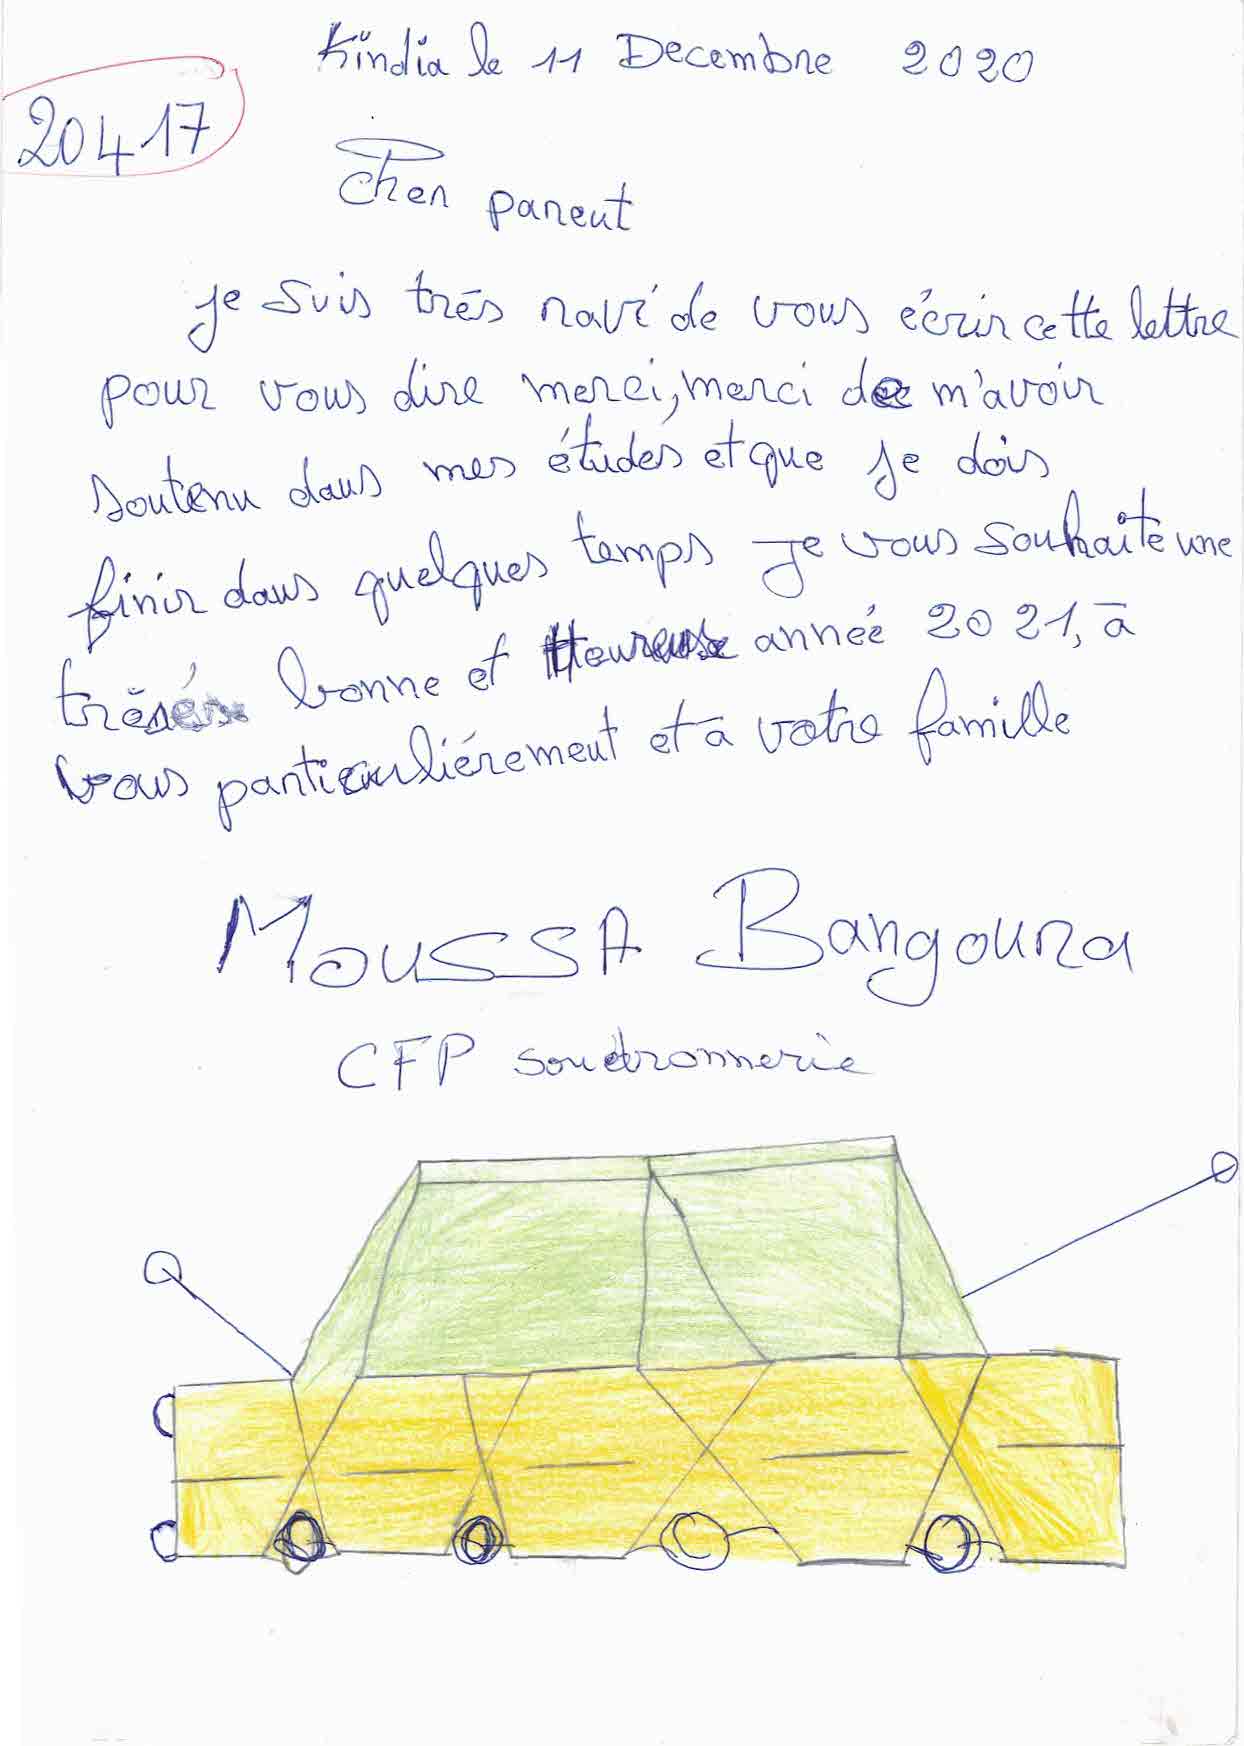 Kindia le 11 Decembre 2020
20417
Cher parent
je suis trés ravi de vous écrir cette lettre
pour vous dire merci, merci de m'avoir
soutenu dans mes études et que je dois
finir dans quelques temps je vous souhaite une
trés bonne et Heureuse année 2021, à
vous particuliérement et à votre famille
MOUSSA Bangoura
CFP